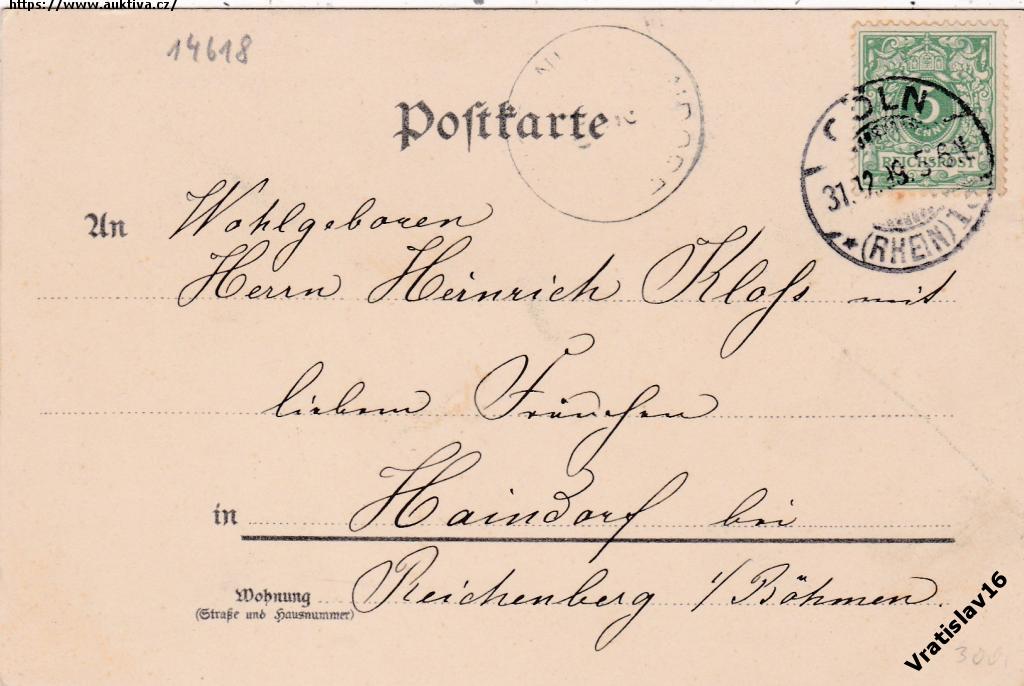 https://www.auktiva.cz/
14618
Postkarte
5
PFENNIG
REICHSPOST
CÖLN
31.12.
* (RHEIN)
An Wohlgeboren
Herrn Heinrich Kloss mit
liebem Frauchen
in Haindorf bei
Reichenberg i/Böhmen.
Wohnung
(Straße und Hausnummer)
Vratislav16